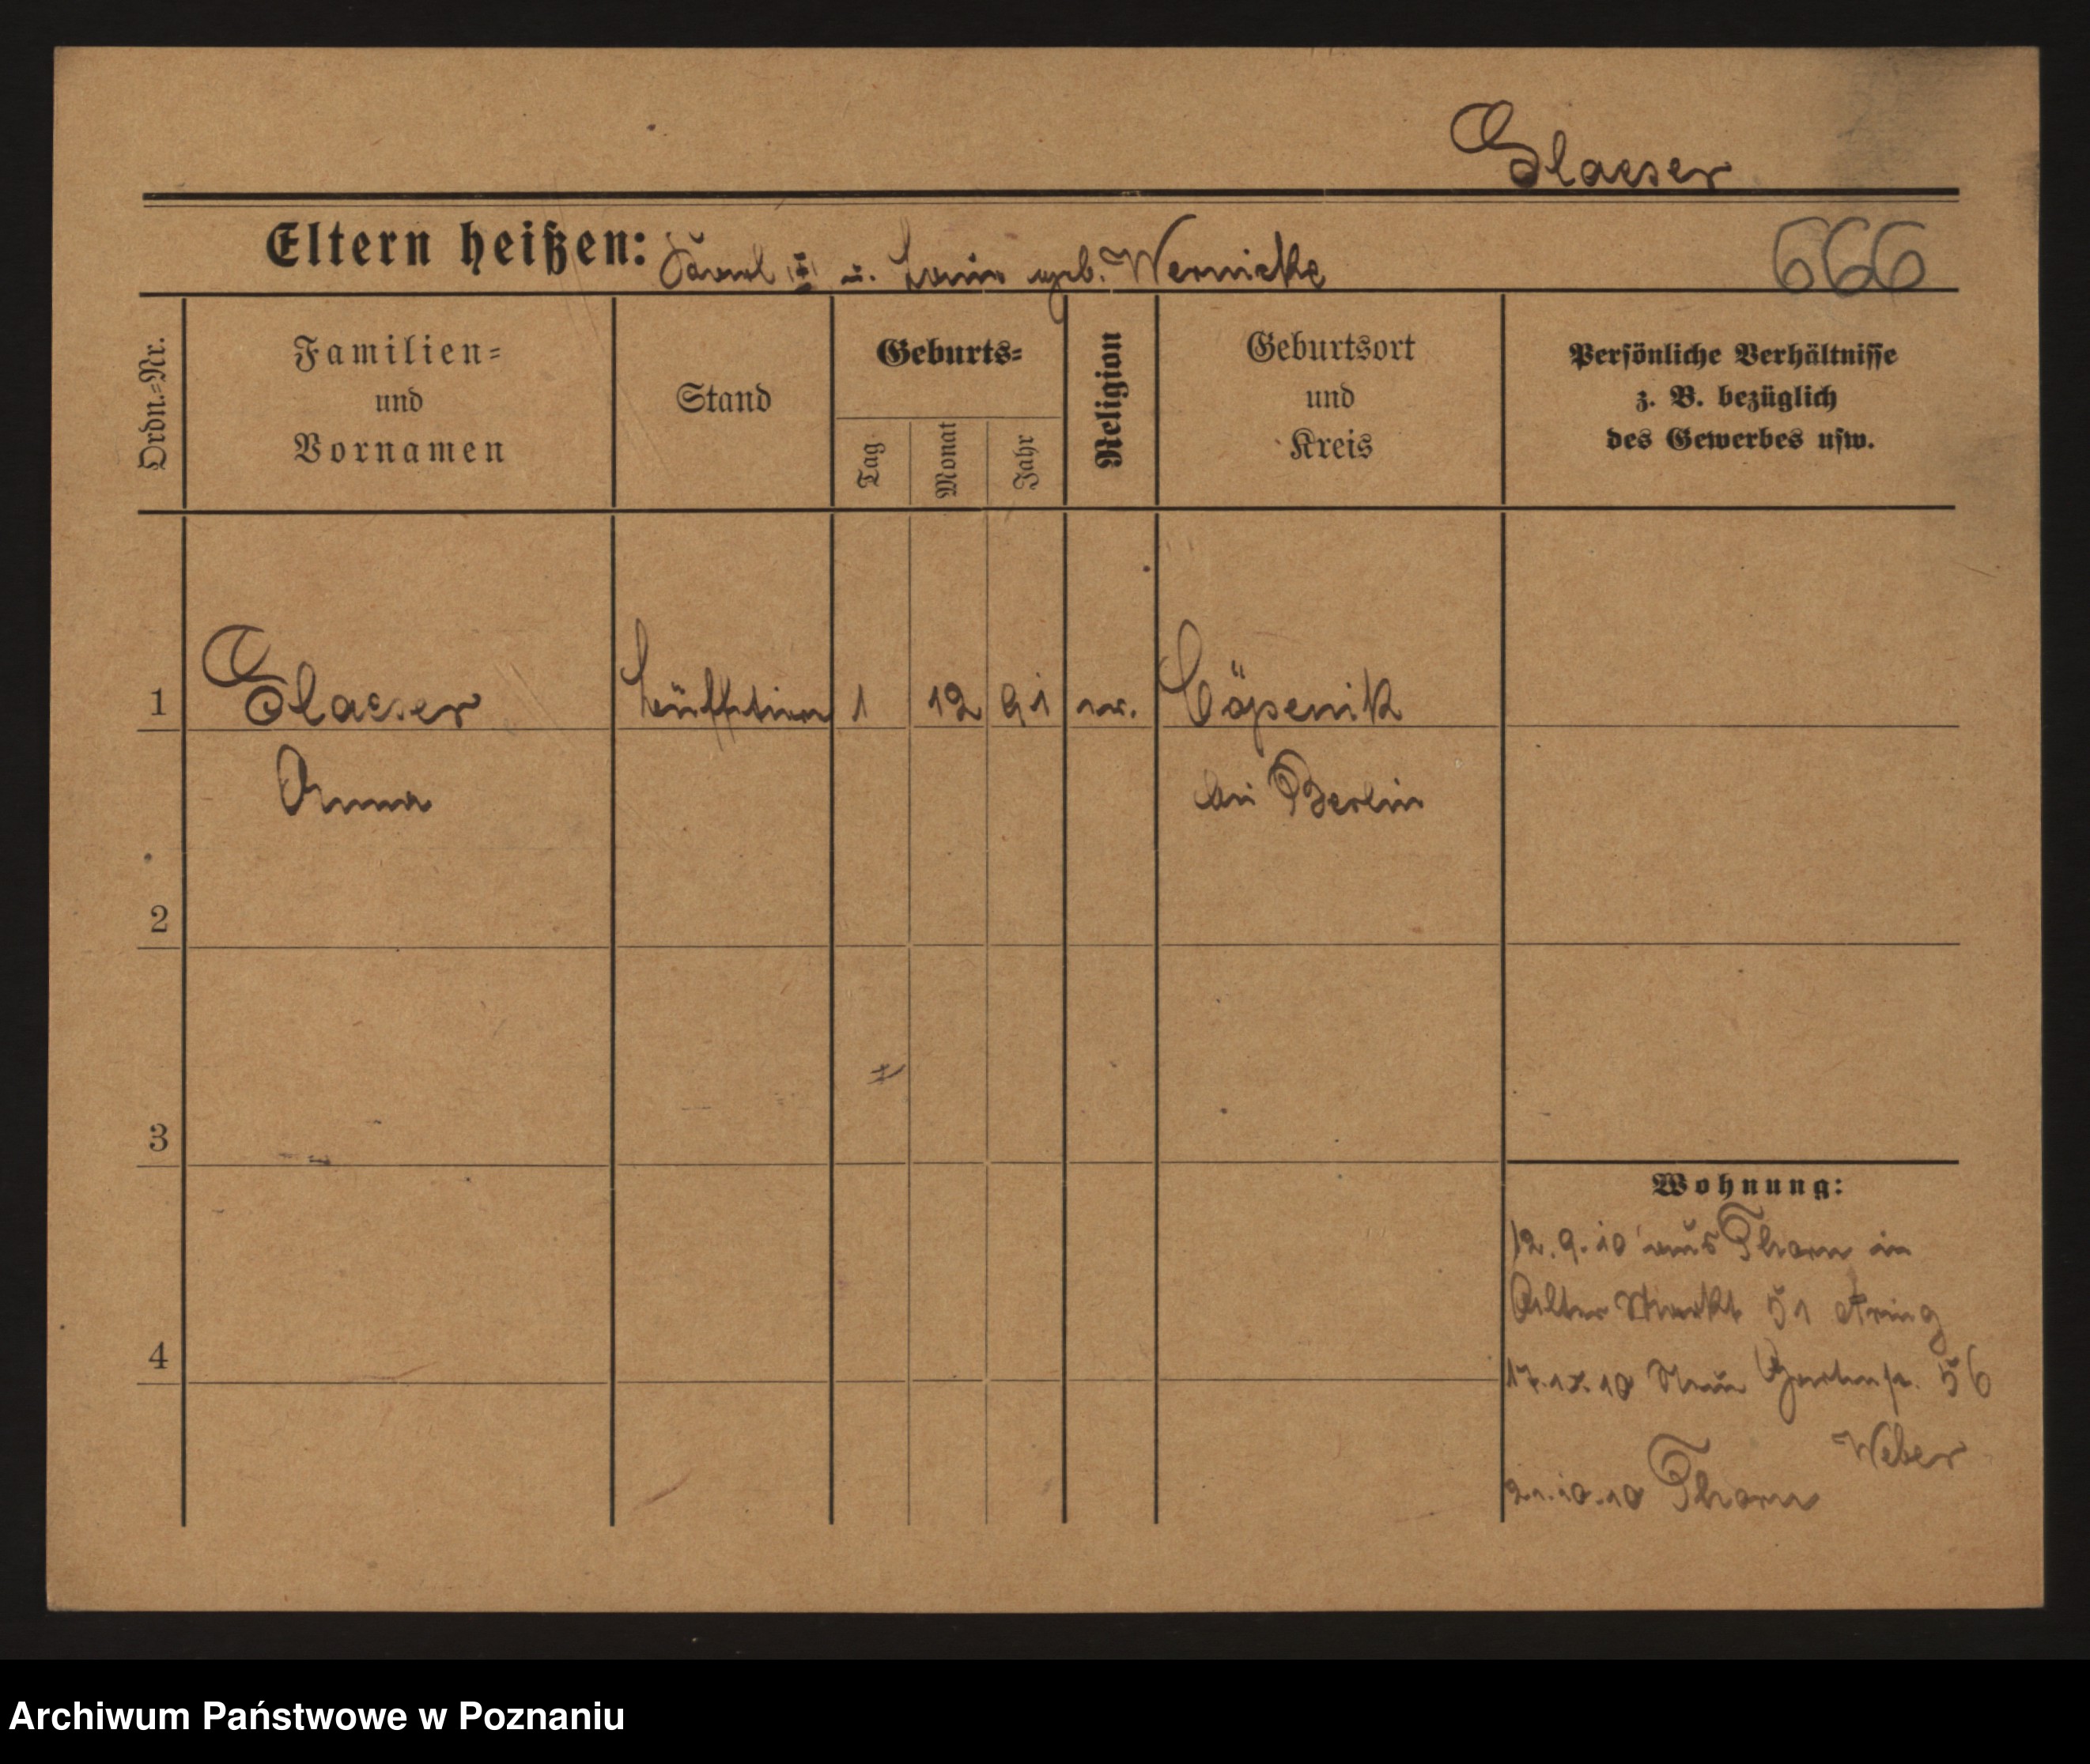 Glaeser
Eltern heißen: Karl u. Luise geb. Wernicke
666
Ordn.-Nr.
Familien-
und
Vornamen
Stand
Geburts-
Tag
Monat
Jahr
Religion
Geburtsort
und
Kreis
Persönliche Verhältnisse
z. B. bezüglich
des Gewerbes usw.
1 Glaeser 1 12 91 ev. Cöpenik
Anna bei Berlin
2
3
4
Wohnung:
12.9.10 aus Thorn in
Alter Markt 51
17.10.10 Neue Gartenstr. 56
Weber
21.10.10 Thorn
Archiwum Państwowe w Poznaniu